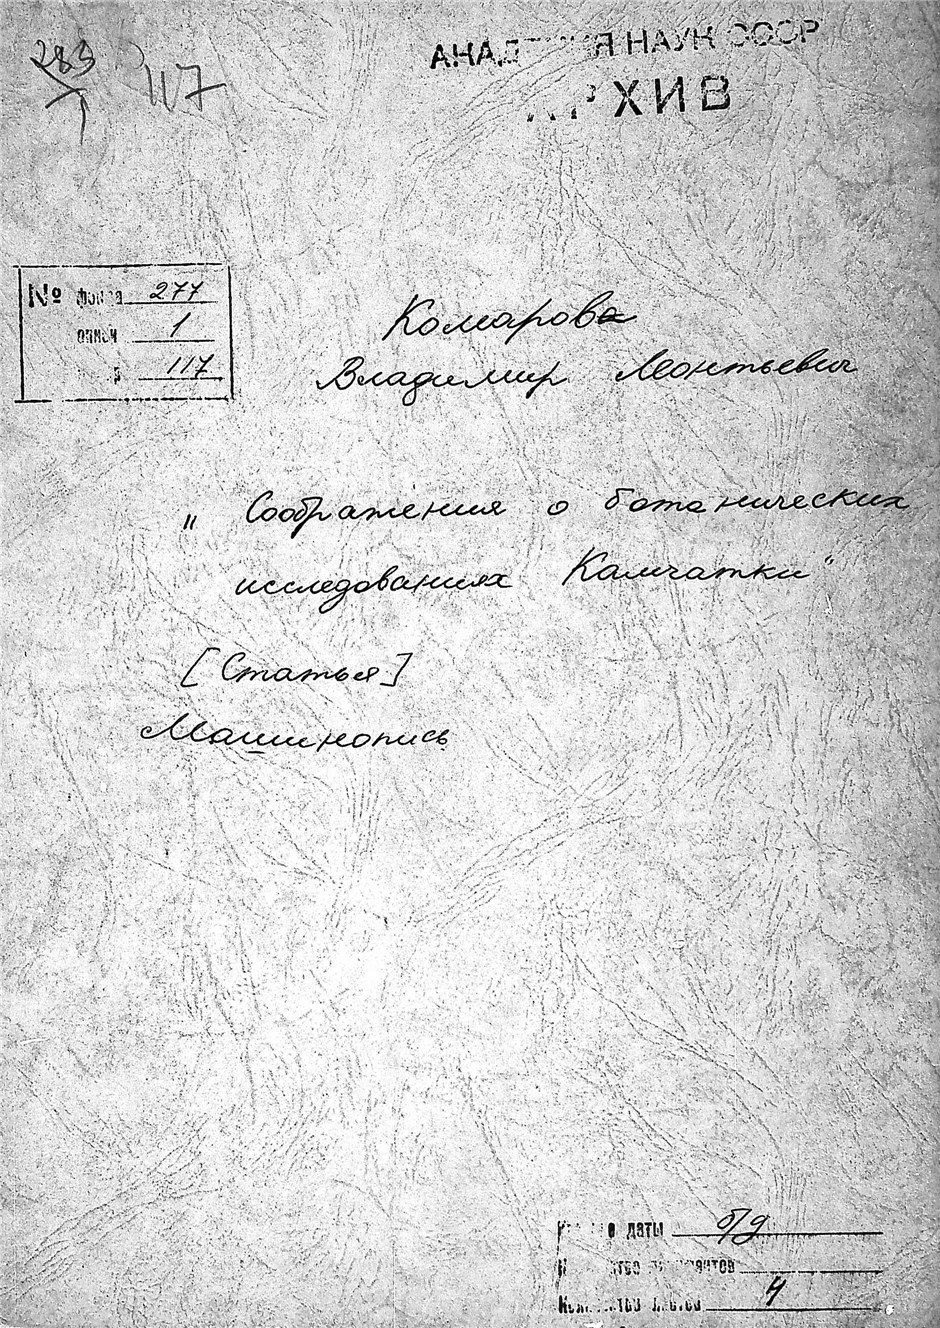 283
1
117
АКАДЕМИЯ НАУК СССР
АРХИВ
№ фонда 277
описи 1
117
Комарова
Владимир Леонтьевич
„Соображения о ботанических
исследованиях Камчатки"
[Статья]
Машинопись
даты б/д
Количество документов
Количество листов 4